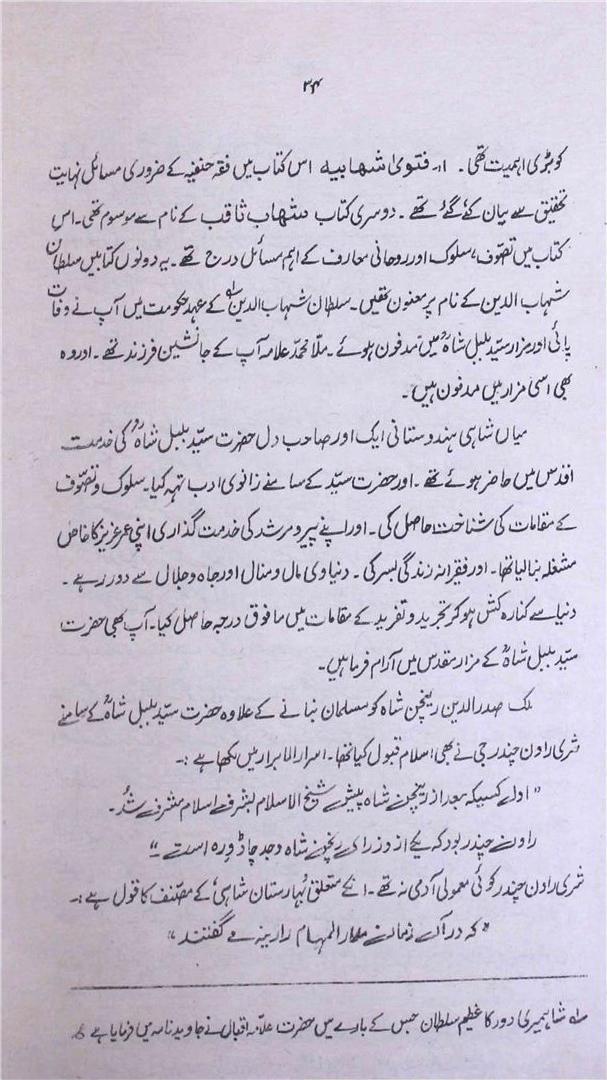 ۳۴
کو بڑی اہمیت تھی۔ ا۔ فتویٰ شہابیہ اس کتاب میں فقہ حنفیہ کے ضروری مسائل نہایت
تحقیق سے بیان کئے گئے تھے۔ دوسری کتاب شہاب ثاقب کے نام سے موسوم تھی۔ اس
کتاب میں تصوف، سلوک اور روحانی معارف کے اہم مسائل درج تھے۔ یہ دونوں کتابیں سلطان
شہاب الدین کے نام پر معنون تھیں۔ سلطان شہاب الدین کے عہد حکومت میں آپ نے وفات
پائی اور مزار سید بلبل شاہؒ میں مدفون ہوئے۔ ملا محمد علامہ آپ کے جانشین فرزند تھے۔ اور وہ
بھی اسی مزار میں مدفون ہیں۔
میاں شاہی ہندوستانی ایک اور صاحب دل حضرت سید بلبل شاہؒ کی خدمت
اقدس میں حاضر ہوئے تھے۔ اور حضرت سید کے سامنے زانوی ادب تہہ کیا۔ سلوک و تصوف
کے مقامات کی شناخت حاصل کی۔ اور اپنے پیر و مرشد کی خدمت گذاری اپنی عمر عزیز کا خاص
مشغلہ بنا لیا تھا۔ اور فقیرانہ زندگی بسر کی۔ دنیاوی مال و منال اور جاہ و جلال سے دور رہے۔
دنیا سے کنارہ کش ہو کر تجرید و تفرید کے مقامات میں مافوق درجہ حاصل کیا۔ آپ بھی حضرت
سید بلبل شاہؒ کے مزار مقدس میں آرام فرما ہیں۔
ملک صدر الدین رینچن شاہ کو مسلمان بنانے کے علاوہ حضرت سید بلبل شاہؒ کے سامنے
شری راون چندر جی نے بھی اسلام قبول کیا تھا۔ اسرار الابرار میں لکھا ہے :۔
"اول کسیکہ بعد از رینچن شاہ پیش شیخ الاسلام بشرف اسلام مشرف شد۔
راون چندر بود کہ یکے از وزرای رینچن شاہ وجد چاڈورہ است"
شری راون چندر کوئی معمولی آدمی نہ تھے۔ انکے متعلق بہارستان شاہی کے مصنف کا قول ہے :۔
"کہ در آں زمان مدار المہام را رینہ مے گفتند"
۱؎ شاہمیری دور کا عظیم سلطان جس کے بارے میں حضرت علامہ اقبال نے جاوید نامہ میں فرمایا ہے